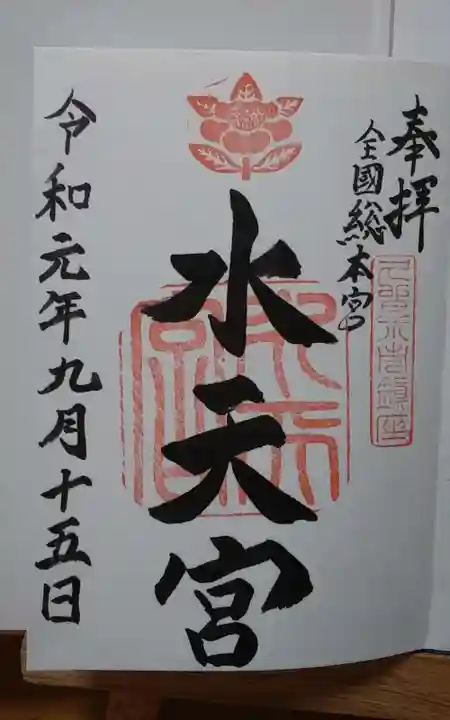 奉拝
全國総本宮
水天宮
令和元年九月十五日